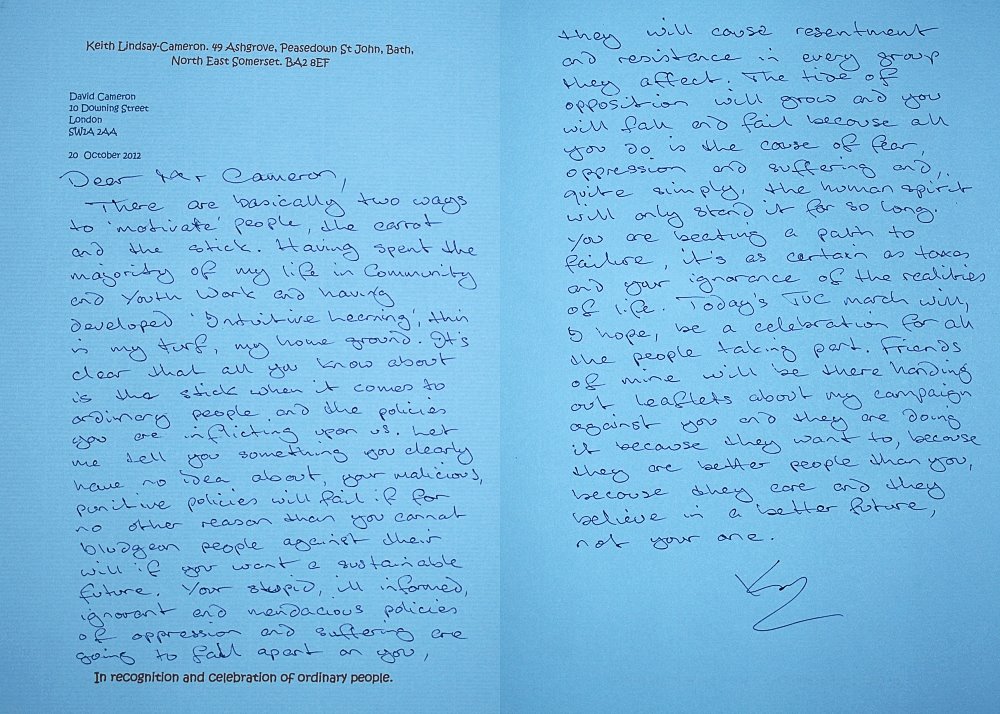 Keith Lindsay-Cameron. 49 Ashgrove, Peasedown St John, Bath,
North East Somerset. BA2 8EF
David Cameron
10 Downing Street
London
SW1A 2AA
20 October 2012
Dear Mr Cameron,
There are basically two ways
to 'motivate' people, the carrot
and the stick. Having spent the
majority of my life in Community
and Youth Work and having
developed 'Intuitive Learning', this
is my turf, my home ground. It's
clear that all you know about
is the stick when it comes to
ordinary people and the policies
you are inflicting upon us. Let
me tell you something you clearly
have no idea about, your malicious,
punitive policies will fail if for
no other reason than you cannot
bludgeon people against their
will if you want a sustainable
future. Your stupid, ill informed,
ignorant and mendacious policies
of oppression and suffering are
going to fall apart on you,
In recognition and celebration of ordinary people.
they will cause resentment
and resistance in every group
they affect. The tide of
opposition will grow and you
will fall and fail because all
you do is the cause of fear,
oppression and suffering and,
quite simply, the human spirit
will only stand it for so long.
You are beating a path to
failure, it's as certain as taxes
and your ignorance of the realities
of life. Today's TUC march will,
I hope, be a celebration for all
the people taking part. Friends
of mine will be there handing
out leaflets about my campaign
against you and they are doing
it because they want to, because
they are better people than you,
because they care and they
believe in a better future,
not your one.